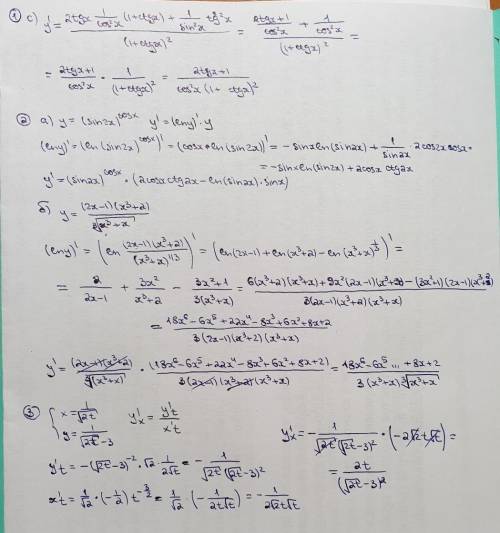 ① c) y' = (2tgx 1/cos²x (1+ctgx) + 1/sin²x tg²x) / (1+ctgx)² = ((2tgx+1)/cos²x + 1/cos²x) / (1+ctgx)² =
= (2tgx+1)/cos²x · 1/(1+ctgx)² = (2tgx+1)/(cos²x (1+ctgx)²)
② a) y = (sin2x)^cosx y' = (lny)' · y
(lny)' = (ln(sin2x)^cosx)' = (cosx · ln(sin2x))' = -sinx ln(sin2x) + 1/sin2x · 2cos2x cosx =
= -sinx ln(sin2x) + 2cosx ctg2x
y' = (sin2x)^cosx · (2cosx ctg2x - ln(sin2x) · sinx)
б) y = (2x-1)(x³+2) / ∛(x³+x)
(lny)' = (ln (2x-1)(x³+2)/(x³+x)^1/3)' = (ln(2x-1) + ln(x³+2) - ln(x³+x)^1/3)' =
= 2/(2x-1) + 3x²/(x³+2) - (3x²+1)/(3(x³+x)) = (6(x³+2)(x³+x) + 9x²(2x-1)(x³+x) - (3x²+1)(2x-1)(x³+2)) / (3(2x-1)(x³+2)(x³+x))
= (18x⁶ - 6x⁵ + 22x⁴ - 8x³ + 6x² + 8x + 2) / (3(2x-1)(x³+2)(x³+x))
y' = (2x-1)(x³+2)/∛(x³+x) · (18x⁶ - 6x⁵ + 22x⁴ - 8x³ + 6x² + 8x + 2) / (3(2x-1)(x³+2)(x³+x)) = (18x⁶ - 6x⁵ ... + 8x + 2) / (3(x³+x) ∛(x³+x))
③ { x = 1/√2t y = 1/(√2t - 3) y'x = y't / x't
y't = -(√2t - 3)⁻² · √2 · 1/2√t = - 1/(√2t (√2t - 3)²)
x't = 1/√2 · (-1/2) t^-3/2 = 1/√2 · (- 1/2t√t) = - 1/2√2 t√t
y'x = - 1/(√2t (√2t - 3)²) · (-2√2 t√t) =
= 2t/(√2t - 3)²